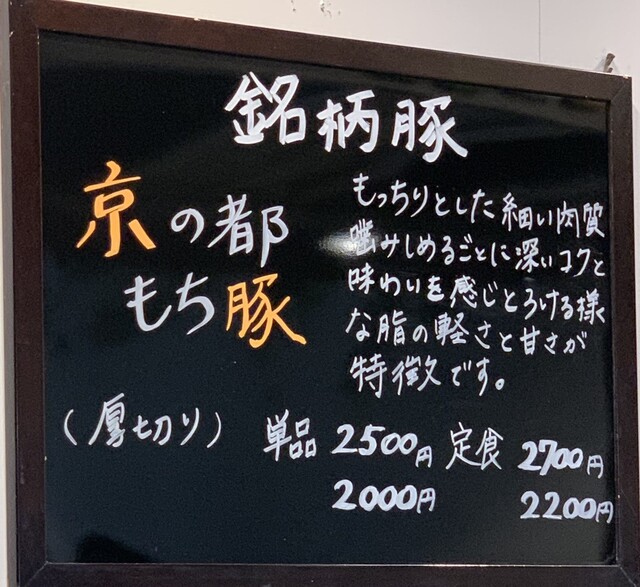 銘柄豚
京の都
もち豚
もっちりとした細い肉質
噛みしめるごとに深いコクと
味わいを感じとろける様
な脂の軽さと甘さが
特徴です。
(厚切り) 単品 2500円 定食 2700円
2000円 2200円